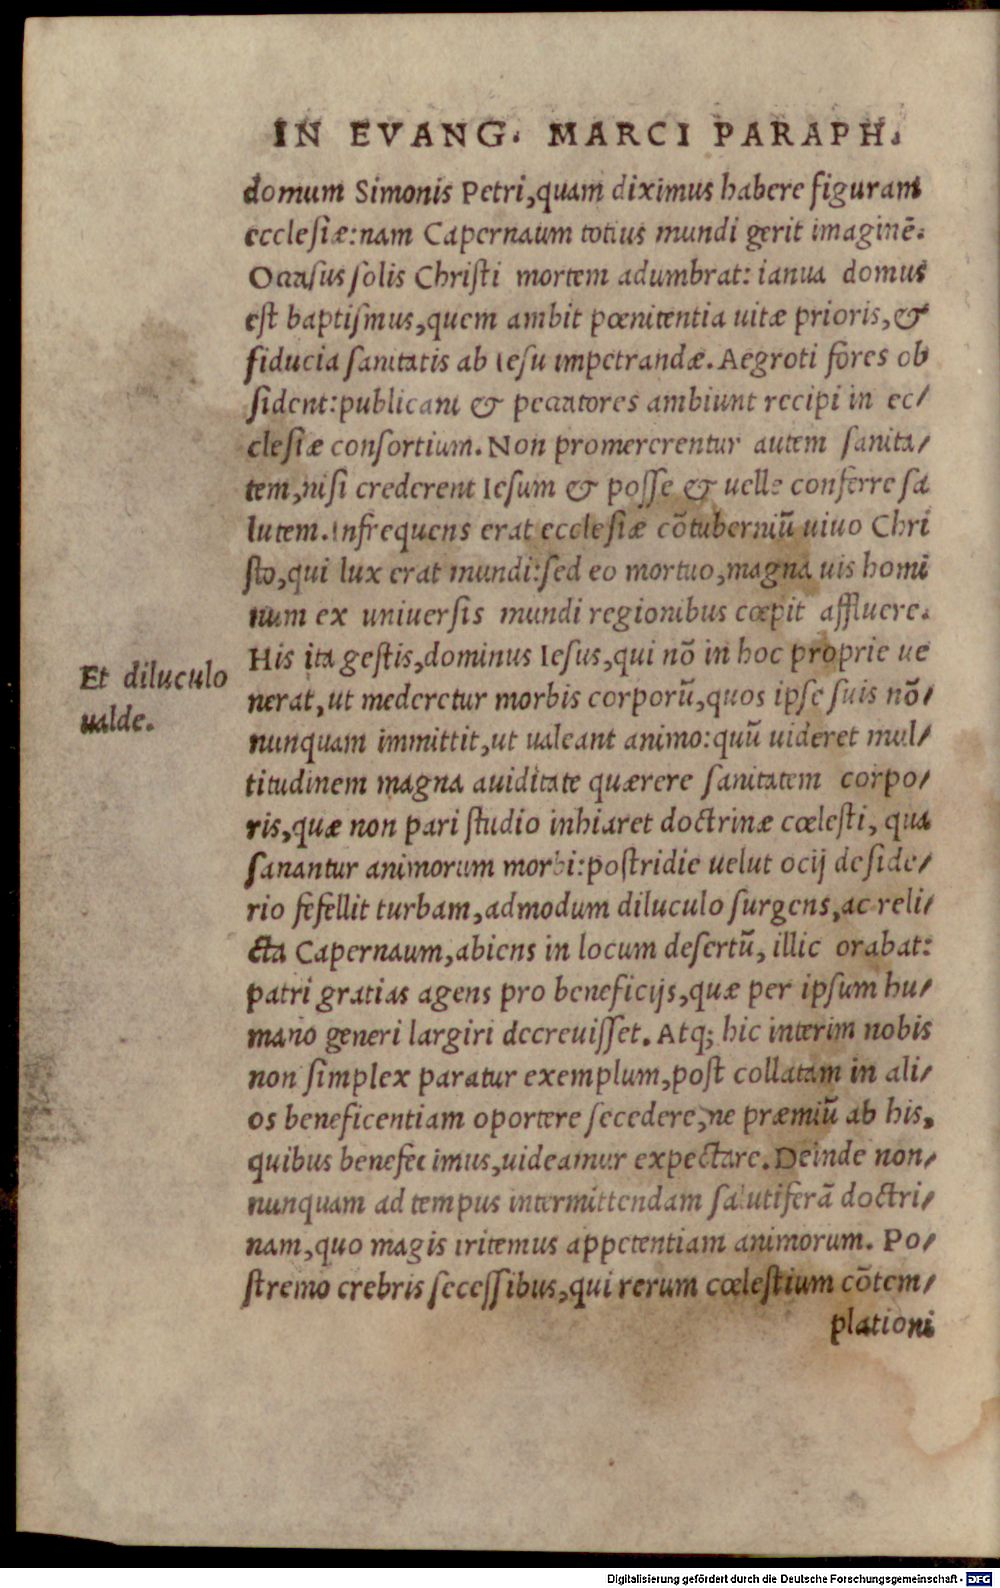 IN EVANG. MARCI PARAPH.
domum Simonis Petri, quam diximus habere figuram
ecclesiæ: nam Capernaum totius mundi gerit imaginē.
Occasus solis Christi mortem adumbrat: ianua domus
est baptismus, quem ambit pœnitentia uitæ prioris, &
fiducia sanitatis ab Iesu impetrandæ. Aegroti fores ob
sident: publicani & peccatores ambiunt recipi in ec/
clesiæ consortium. Non promererentur autem sanita/
tem, nisi crederent Iesum & posse & uelle conferre sa
lutem. Infrequens erat ecclesiæ cōtuberniū uiuo Chri
sto, qui lux erat mundi: sed eo mortuo, magna uis homi
num ex uniuersis mundi regionibus cœpit affluere.
His ita gestis, dominus Iesus, qui nō in hoc proprie ue
Et diluculo
ualde.
nerat, ut mederetur morbis corporū, quos ipse suis nō/
nunquam immittit, ut ualeant animo: quū uideret mul/
titudinem magna auiditate quærere sanitatem corpo/
ris, quæ non pari studio inhiaret doctrinæ cœlesti, qua
sanantur animorum morbi: postridie uelut ocij deside/
rio fefellit turbam, admodum diluculo surgens, ac reli/
cta Capernaum, abiens in locum desertū, illic orabat:
patri gratias agens pro beneficijs, quæ per ipsum hu/
mano generi largiri decreuisset. Atq; hic interim nobis
non simplex paratur exemplum, post collatam in ali/
os beneficentiam oportere secedere, ne præmiū ab his,
quibus benefecimus, uideamur expectare. Deinde non/
nunquam ad tempus intermittendam salutiferā doctri/
nam, quo magis iritemus appetentiam animorum. Po/
stremo crebris secessibus, qui rerum cœlestium cōtem/
plationi
Digitalisierung gefördert durch die Deutsche Forschungsgemeinschaft - DFG